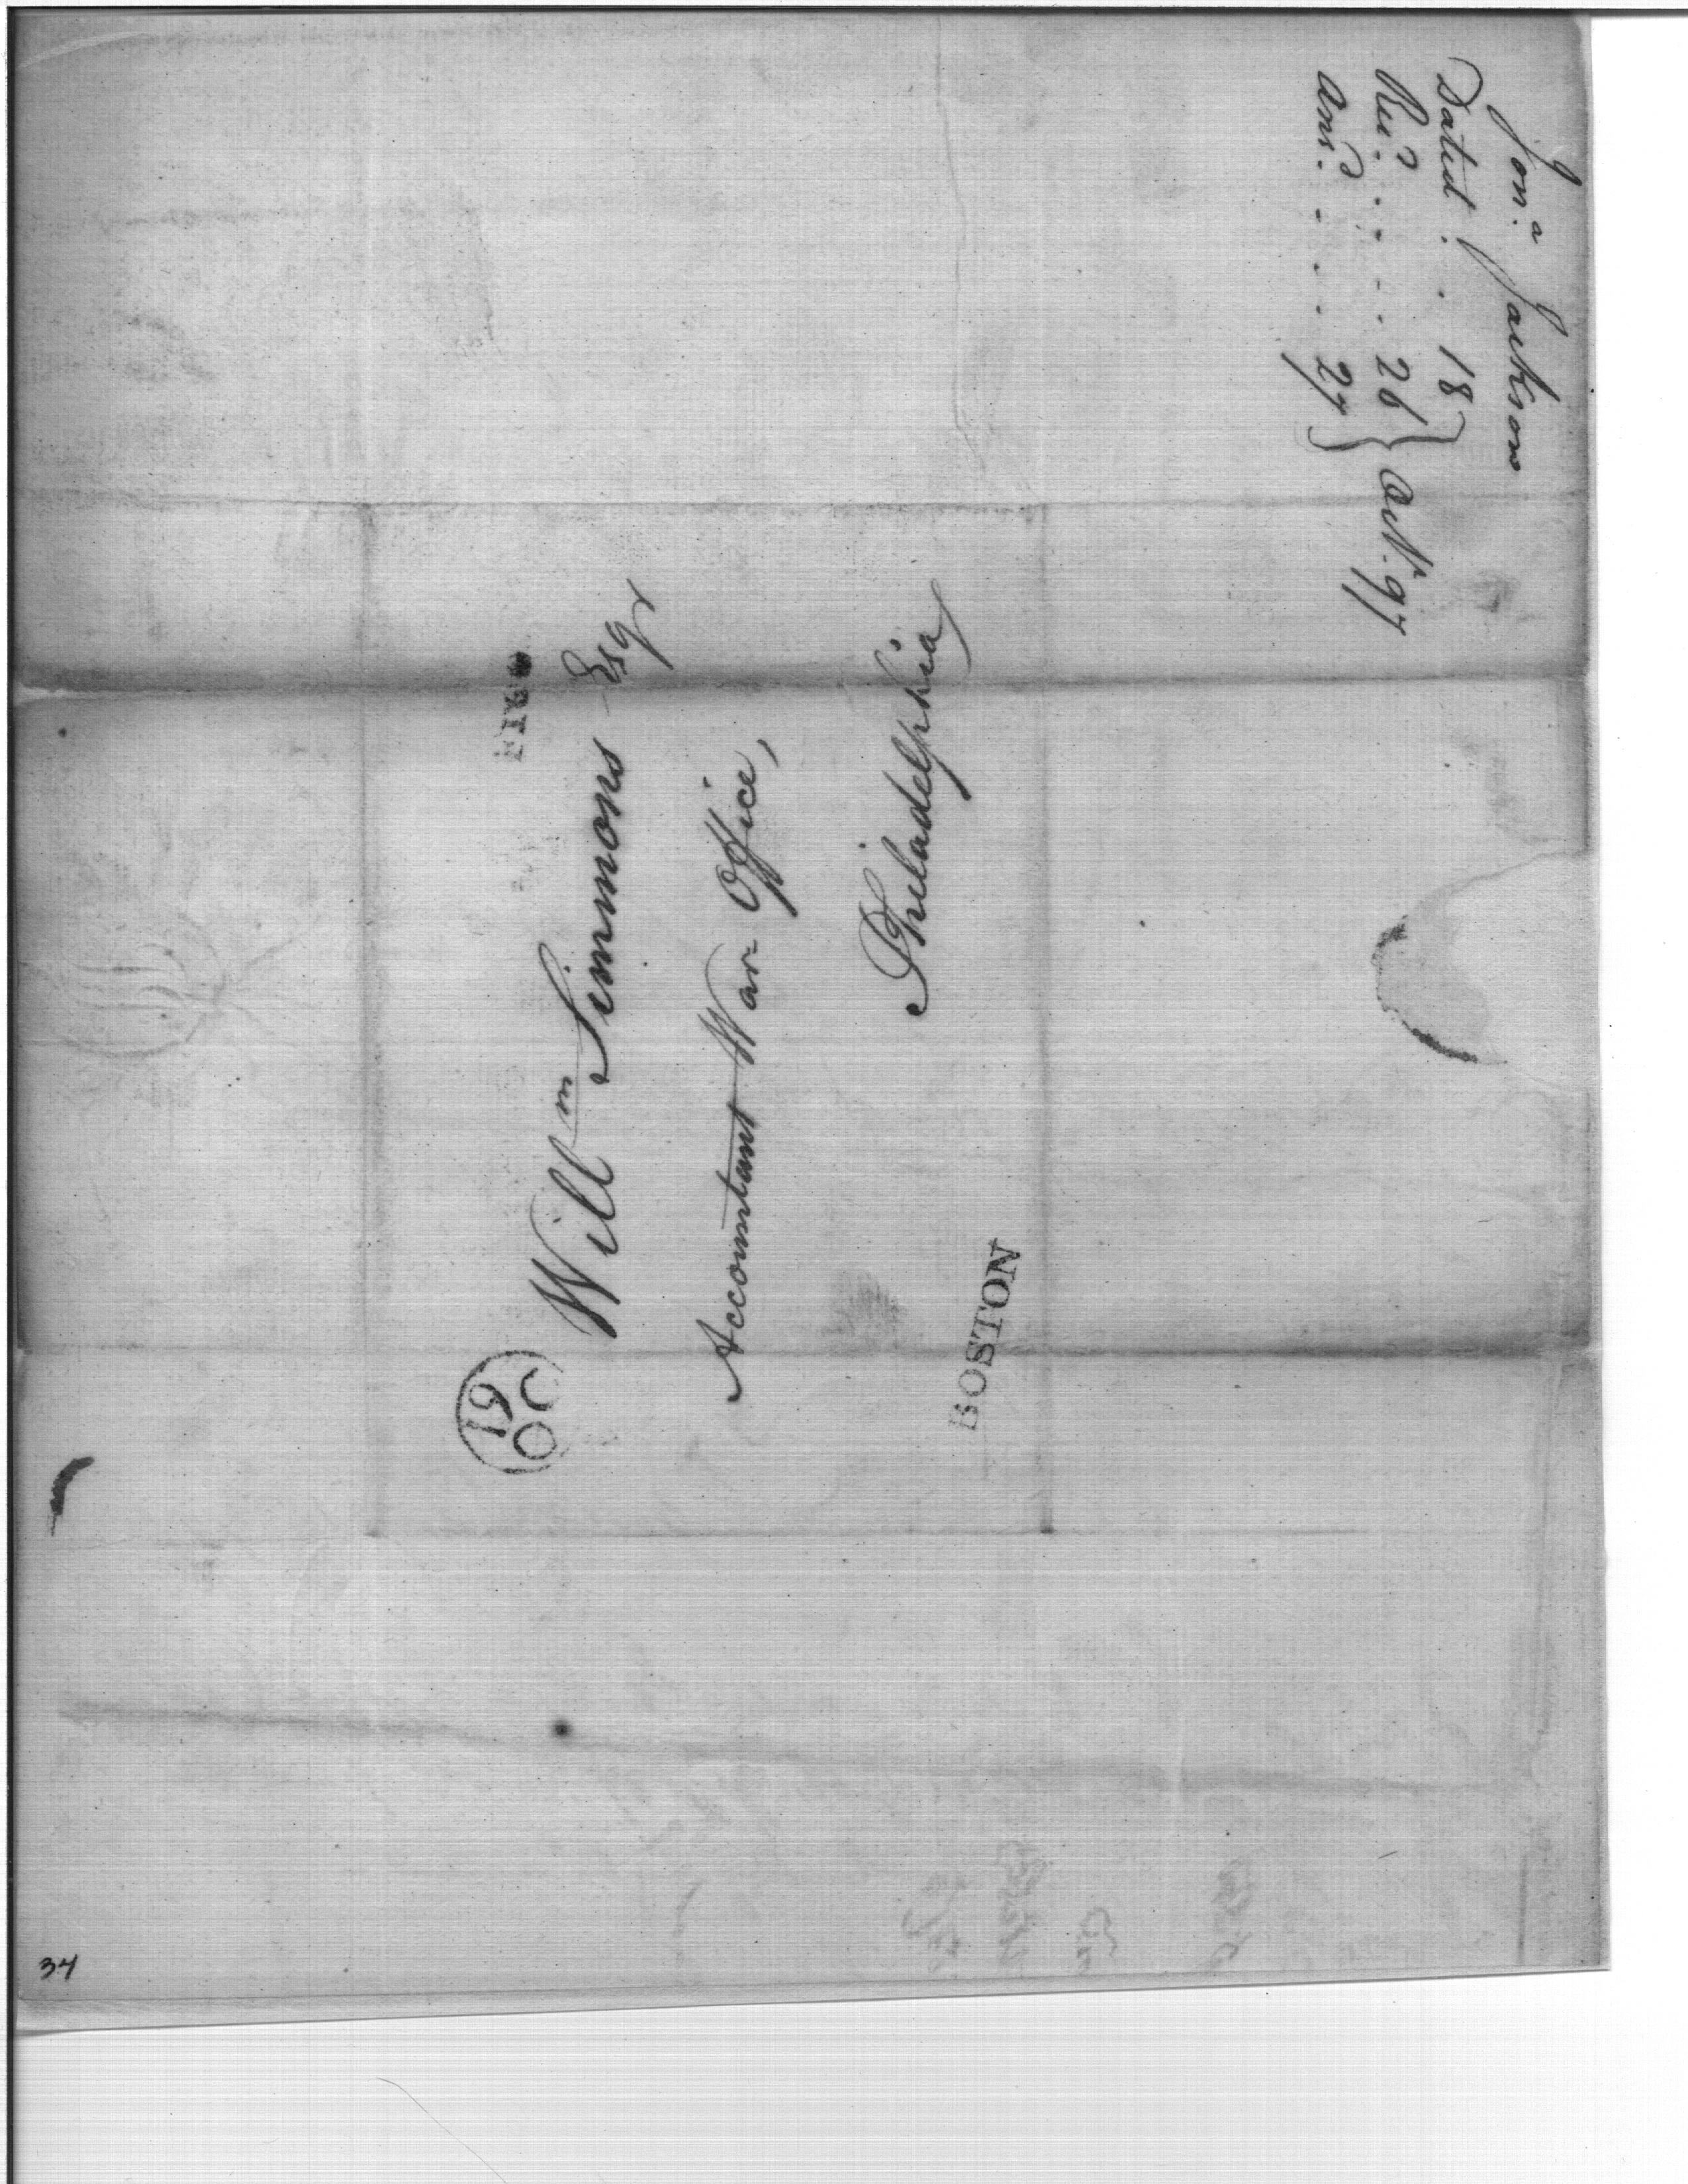 Jon.a Jackson
Dated . . 18
Rec.d . . . . 26 } Oct.r 97
Ans.d . . . . 27
FREE
Willm Simmons Esqr
Accountant War Office,
Philadelphia
19
OC
BOSTON
34